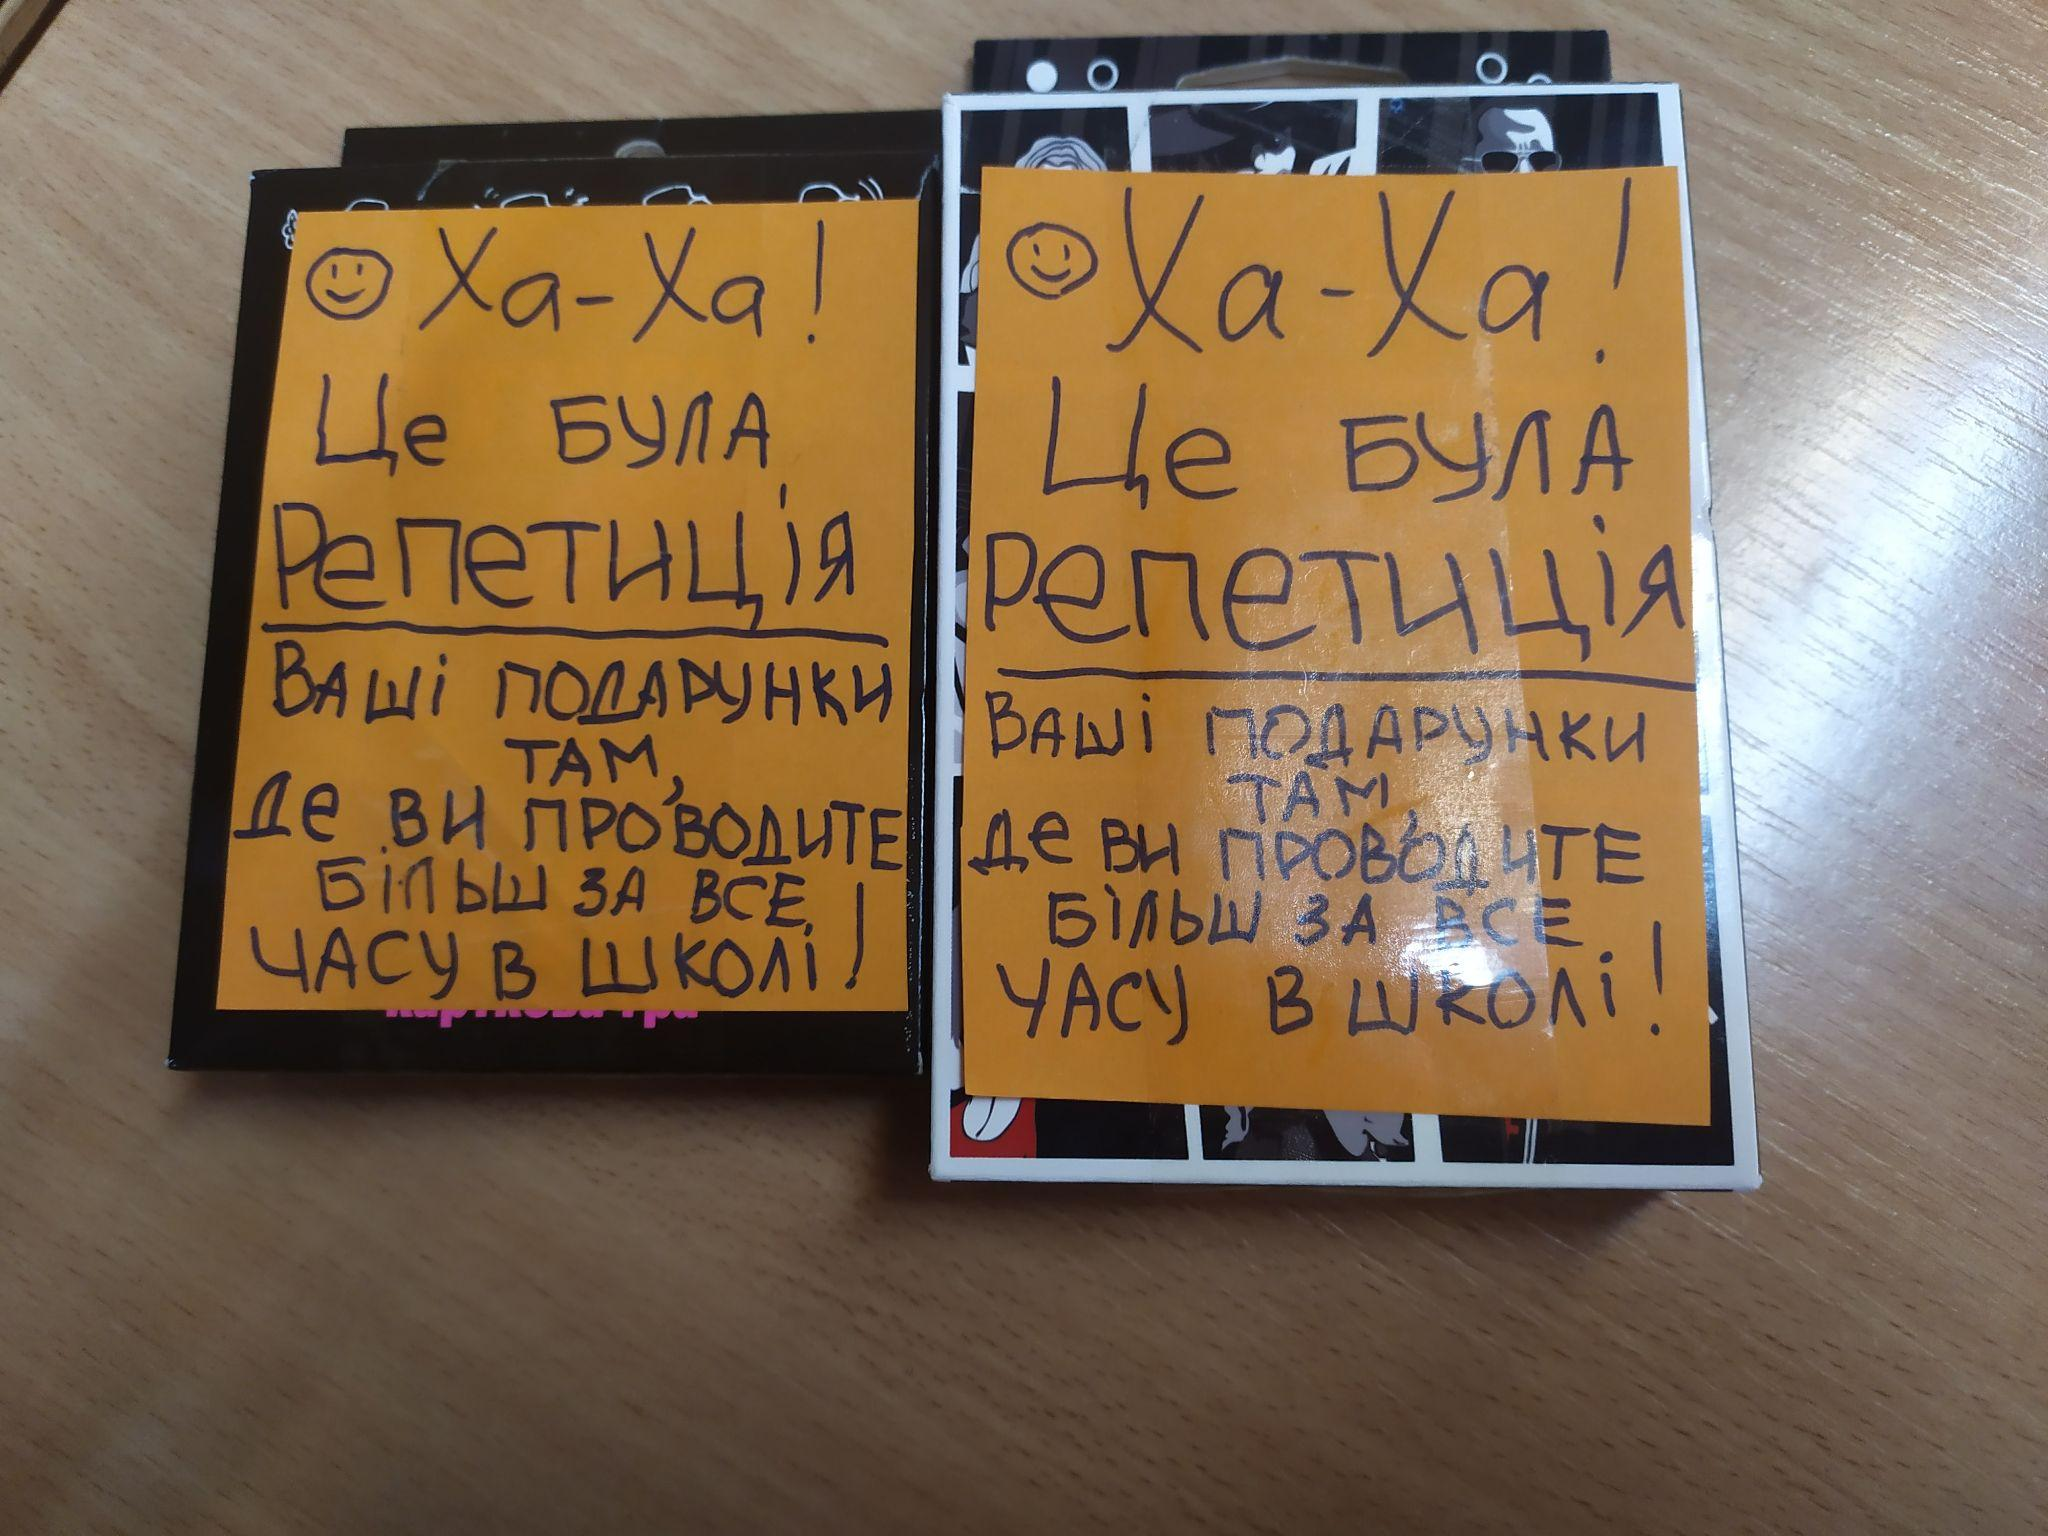 Ха-Ха!
Це БУЛА
РЕПЕТИЦІЯ
ВАШІ ПОДАРУНКИ
ТАМ,
ДЕ ВИ ПРОВОДИТЕ
БІЛЬШ ЗА ВСЕ
ЧАСУ В ШКОЛІ!
карткова гра
Ха-Ха!
Це БУЛА
РЕПЕТИЦІЯ
ВАШІ ПОДАРУНКИ
ТАМ,
ДЕ ВИ ПРОВОДИТЕ
БІЛЬШ ЗА ВСЕ
ЧАСУ В ШКОЛІ!